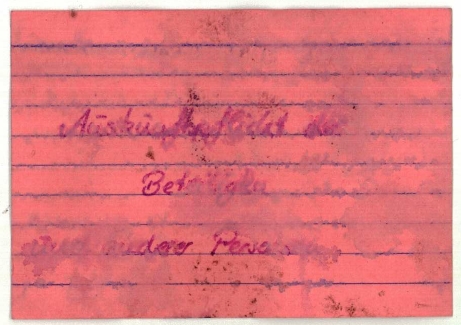 Auskunftspflicht der
Beteiligten
und anderer Personen